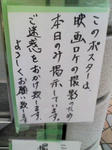 このポスターは、
映画ロケの撮影のため
本日のみ掲示しています。
ご迷惑をおかけ致します。
よろしくお願い致します。